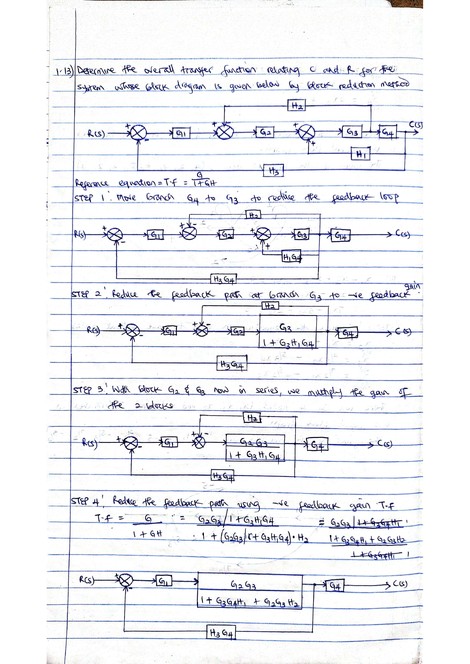 1.13) Determine the overall transfer function relating C and R for the
system whose block diagram is given below by block reduction method
H2
R(s) + - G1 + - G2 + + G3 G4 C(s)
H1
H3
Reference equation = T.f = G/1+GH
STEP 1: Move branch G4 to G3 to reduce the feedback loop
H2
R(s) + - G1 - G2 + + G3 G4 C(s)
H1G4
H3G4
STEP 2: Reduce the feedback path at branch G3 to -ve feedback gain
H2
R(s) + - G1 + - G2 G3 / 1 + G3H1G4 G4 C(s)
H3G4
STEP 3: With block G2 & G3 now in series, we multiply the gain of
the 2 blocks
H2
R(s) + - G1 - G2G3 / 1 + G3H1G4 G4 C(s)
H3G4
STEP 4: Reduce the feedback path using -ve feedback gain T.f
T.f = G / 1 + GH = G2G3/1+G3H1G4 / 1 + (G2G3/1+G3H1G4) * H2 = G2G3/1+G3G4H1 / 1+G3G4H1 + G2G3H2 / 1+G3G4H1
R(s) + - G1 G2G3 / 1 + G3G4H1 + G2G3H2 G4 C(s)
H3G4